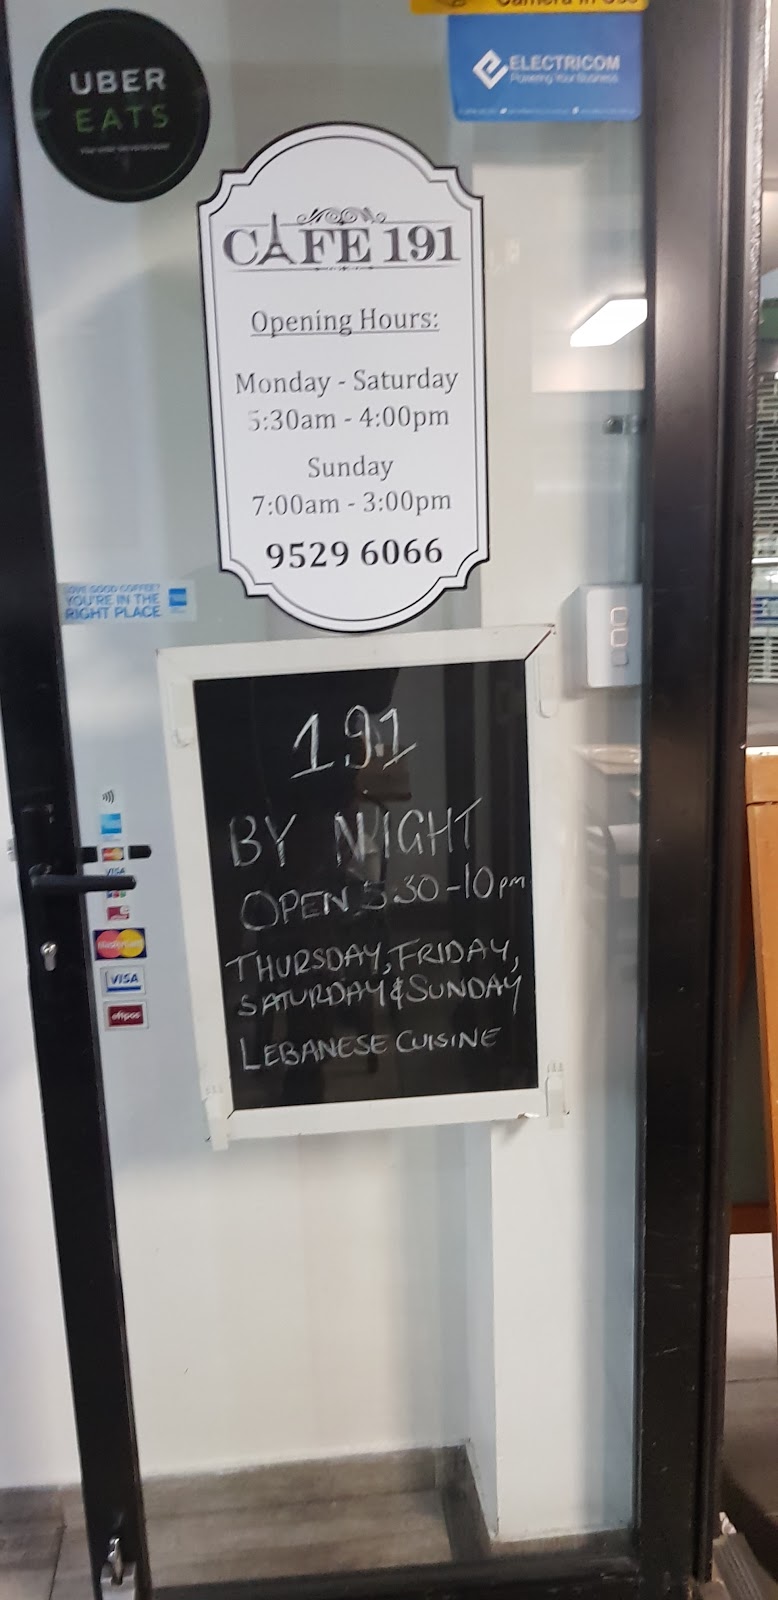 Camera in Use
UBER
EATS
ELECTRICOM
Powering Your Business
CAFE 191
Opening Hours:
Monday - Saturday
5:30am - 4:00pm
Sunday
7:00am - 3:00pm
9529 6066
LOVE GOOD COFFEE?
YOU'RE IN THE
RIGHT PLACE
191
BY NIGHT
OPEN 5:30-10pm
THURSDAY, FRIDAY,
SATURDAY & SUNDAY
LEBANESE CUISINE
VISA
MasterCard
VISA
eftpos